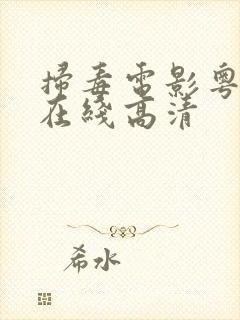 掃毒電影粵
在綫高清
希水